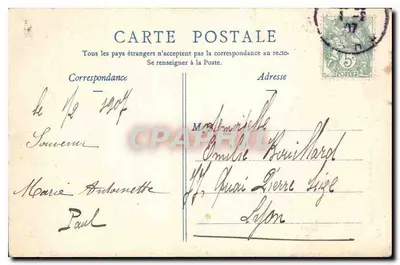 CARTE POSTALE
Tous les pays étrangers n'acceptent pas la correspondance au recto-
Se renseigner à la Poste.
Correspondance
Adresse
le 1/2 1907
Souvenir
Marie Antoinette
Paul
Mademoiselle
Emilie
Quai Pierre Scize
Lyon
5c
POSTES
07
CPAPHIL